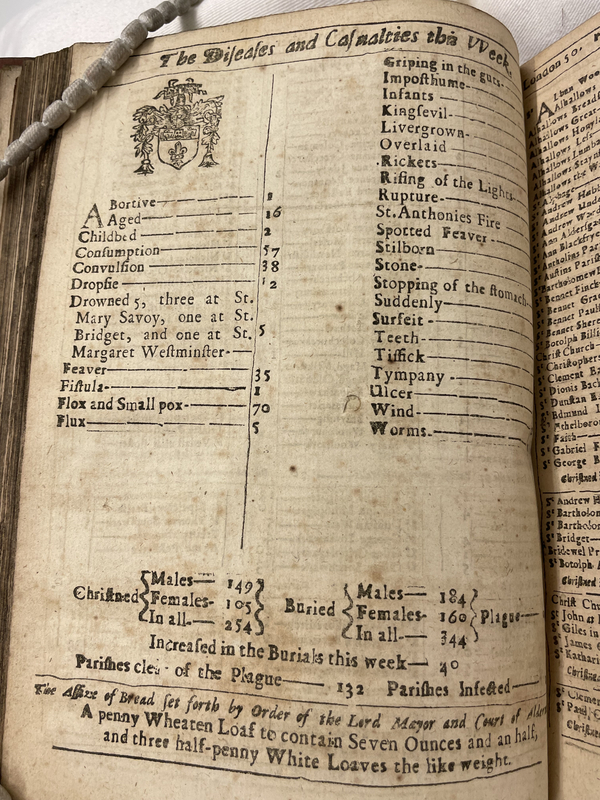 The Diſeaſes and Caſualties this VVeek.
ABortive 1
Aged 16
Childbed 2
Conſumption 57
Convulſion 38
Dropſie 12
Drowned 5, three at St.
Mary Savoy, one at St.
Bridget, and one at St. 5
Margaret Weſtminſter
Feaver 35
Fiſtula 1
Flox and Small pox 70
Flux 5
Griping in the guts
Impoſthume
Infants
Kingſevil
Livergrown
Overlaid
Rickets
Riſing of the Lights
Rupture
St. Anthonies Fire
Spotted Feaver
Stilborn
Stone
Stopping of the ſtomach
Suddenly
Surfeit
Teeth
Tiſſick
Tympany
Ulcer
Wind
Worms
Chriſtned Males 149 Females 105 In all 254
Buried Males 184 Females 160 In all 344 Plague
Increaſed in the Burials this week 40
Pariſhes clear of the Plague 132 Pariſhes Infected
The Aſſize of Bread ſet forth by Order of the Lord Mayor and Court of
A penny Wheaten Loaf to contain Seven Ounces and an half,
and three half-penny White Loaves the like weight.
London 50.
Alban
Alhallows
Alhallows Great
Alhallows
Alhallows Leſ
Alhallows
Alhallows
Alhallows the
St Andrew
St Andrew
St Andrew
St Ann
St Ann Blackfry
St Antholins Pari
St Auſtins Pariſh
St Bartholomew
St Bennet Finck
St Bennet Grac
St Bennet Paul
St Bennet Shere
St Botolph Billi
Chriſt Church
St Chriſtophers
St Clement Ea
St Dionis Back
St Dunſtan Ea
St Edmund
St Ethelboro
St Faith
St Gabriel F
St George B
Chriſtned
St Andrew H
St Bartholom
St Bartholom
St Bridget
Bridewel Pr
St Botolph A
Chriſtned
Chriſt Chu
St John a
St Giles in
St James
St Kathari
Chriſtned
St Clemen
St Paul C
Chriſtned